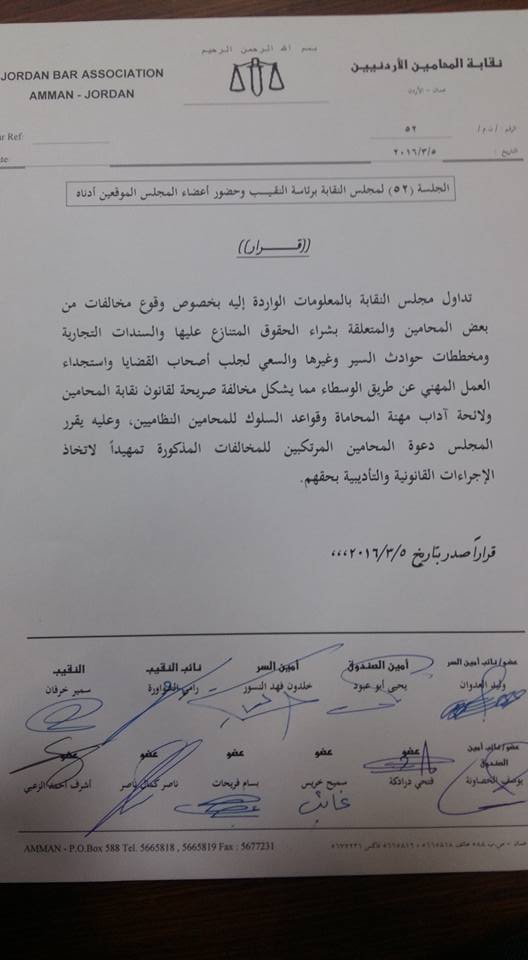 بسم الله الرحمن الرحيم
نقابة المحامين الأردنيين
عمان - الأردن
JORDAN BAR ASSOCIATION
AMMAN - JORDAN
الرقم:
٥٢
ur Ref:
التاريخ:
٢٠١٦/٣/٥
ate:
الجلسة (٥٢) لمجلس النقابة برئاسة النقيب وحضور أعضاء المجلس الموقعين أدناه
((قرار))
تداول مجلس النقابة بالمعلومات الواردة إليه بخصوص وقوع مخالفات من
بعض المحامين والمتعلقة بشراء الحقوق المتنازع عليها والسندات التجارية
ومخططات حوادث السير وغيرها والسعي لجلب أصحاب القضايا واستجداء
العمل المهني عن طريق الوسطاء مما يشكل مخالفة صريحة لقانون نقابة المحامين
ولائحة آداب مهنة المحاماة وقواعد السلوك للمحامين النظاميين، وعليه يقرر
المجلس دعوة المحامين المرتكبين للمخالفات المذكورة تمهيداً لاتخاذ
الإجراءات القانونية والتأديبية بحقهم.
قراراً صدر بتاريخ ٢٠١٦/٣/٥،،،
النقيب
سمير خرفان
نائب النقيب
رامي الشواورة
أمين السر
خلدون فهد النسور
أمين الصندوق
يحيى أبو عبود
عضو/ نائب أمين السر
وليد العدوان
عضو
أشرف احمد الزعبي
عضو
ناصر كمال ناصر
عضو
بسام فريحات
عضو
سميح خريس
غائب
عضو
فتحي درادكة
عضو/نائب أمين
الصندوق
يوسف الخصاونة
AMMAN - P.O.Box 588 Tel. 5665818 , 5665819 Fax : 5677231
عمان - ص.ب ٥٨٨ هاتف ٥٦٦٥٨١٨ ، ٥٦٦٥٨١٩ فاكس